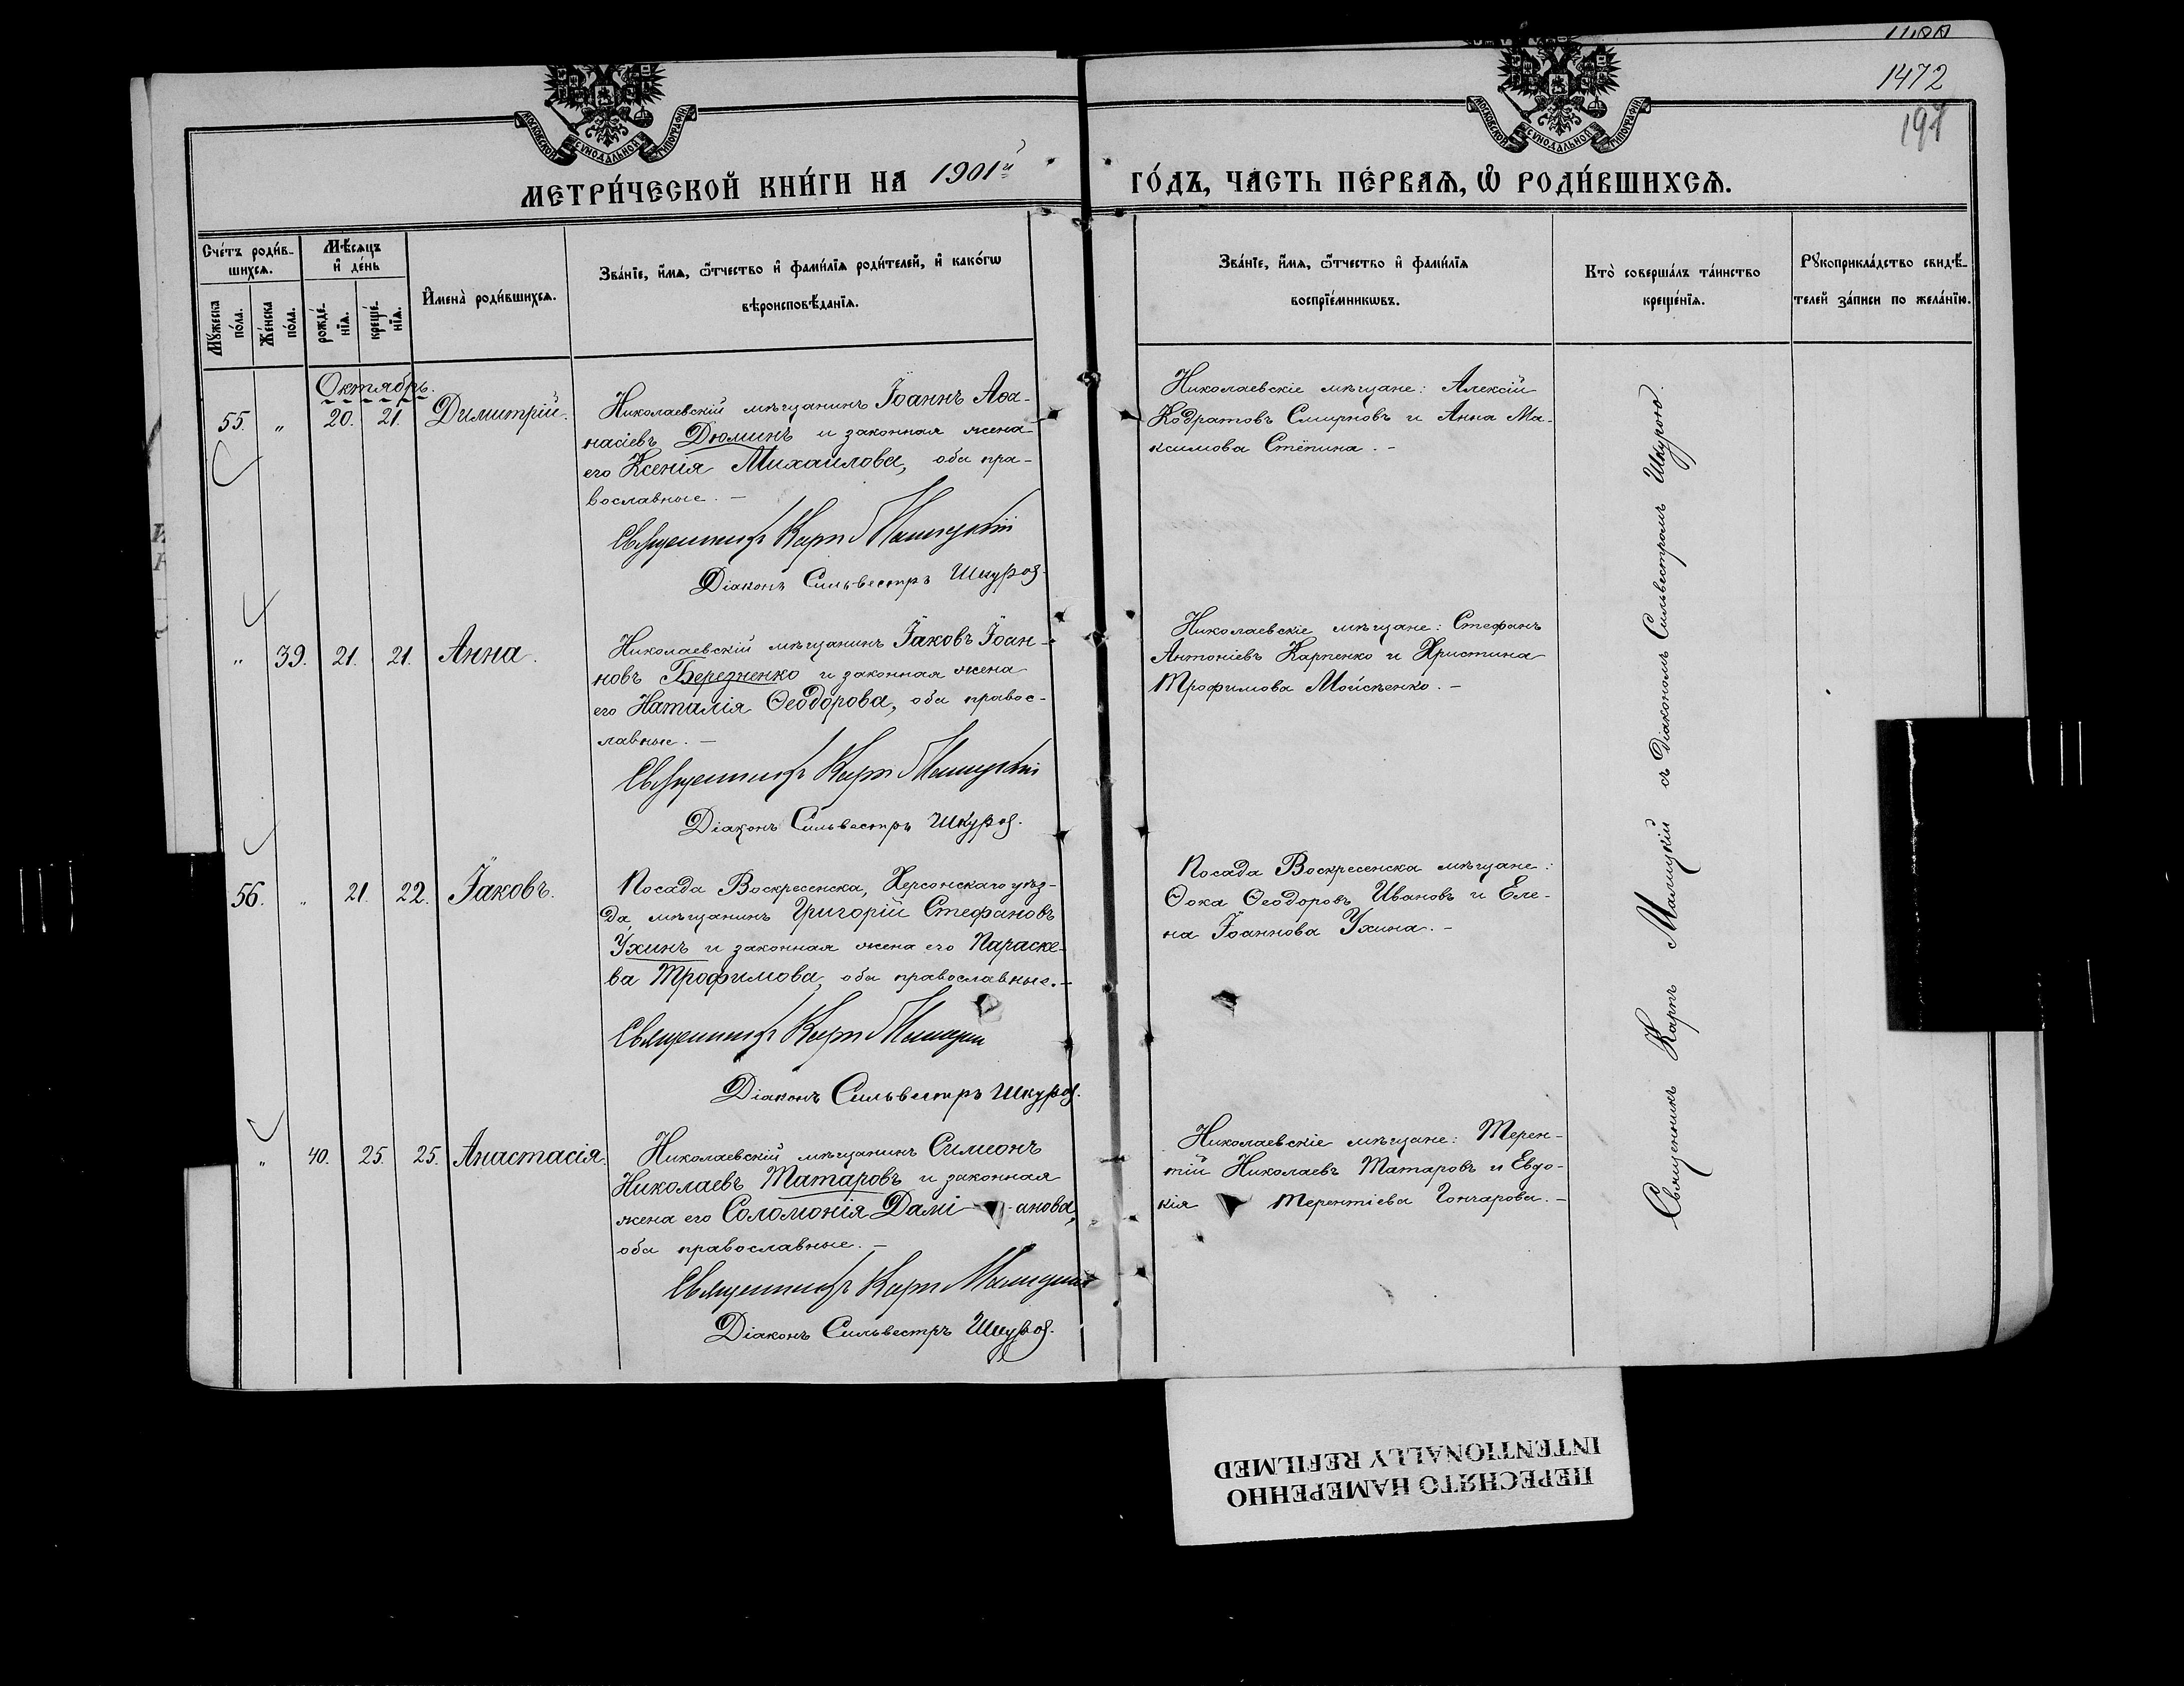 1472
197
МОСКОВСКОЙ СУНОДАЛЬНОЙ ТИПОГРАФІИ
МОСКОВСКОЙ СУНОДАЛЬНОЙ ТИПОГРАФІИ
МЕТРИ́ЧЕСКОЙ КНИ́ГИ НА 1901й ГО́ДЪ, ЧА́СТЬ ПЕ́РВАѦ, Ѡ҆ РОДИ́ВШИХСѦ.
Сче́тъ роди́в-
шихсѧ.
Мѣ́сѧцъ
и҆ де́нь
Мꙋ́жеска
по́ла.
Же́нска
по́ла.
рожде́-
нїѧ.
креще́-
нїѧ.
И҆мена̀ роди́вшихсѧ.
Зва́нїе, и҆́мѧ, ѻ҆́тчество и҆ фами́лїѧ роди́телей, и҆ како́гѡ
вѣроисповѣ́данїѧ.
Зва́нїе, и҆́мѧ, ѻ҆́тчество и҆ фами́лїѧ
воспрїе́мникѡвъ.
Кто̀ соверша́лъ та́инство
креще́нїѧ.
Рꙋкоприкла́дство свидѣ́-
телей за́писи по жела́нїю.
Октябрь.
55. " 20. 21. Димитрій.
Николаевскій мѣщанинъ Іоаннъ Аѳа-
насіевъ Дюминъ и законная жена
его Ксенія Михаилова, оба пра-
вославные. –
Священникъ Карп Малицкій
Діаконъ Сильвестръ Шкура.
Николаевскіе мѣщане: Алексій
Кодратовъ Смирновъ и Анна Ма-
ксимова Стёпина. –
" 39. 21. 21. Анна.
Николаевскій мѣщанинъ Іаковъ Іоан-
новъ Березненко и законная жена
его Наталія Ѳеодорова, оба правос-
лавные. –
Священникъ Карп Малицкій
Діаконъ Сильвестръ Шкура.
Николаевскіе мѣщане: Стефанъ
Антоніевъ Карпенко и Христина
Трофимова Мойсѣенко. –
56. " 21. 22. Іаковъ.
Посада Воскресенска, Херсонскаго уѣз-
да, мѣщанинъ Григорій Стефановъ
Ухинъ и законная жена его Параске-
ва Трофимова, оба православные. –
Священникъ Карп Малицкій
Діаконъ Сильвестръ Шкура.
Посада Воскресенска мѣщане:
Ѳока Ѳеодоровъ Ивановъ и Еле-
на Іоаннова Ухина. –
" 40. 25. 25. Анастасія.
Николаевскій мѣщанинъ Симеонъ
Николаевъ Татаровъ и законная
жена его Соломонія Даміанова,
оба православные. –
Священникъ Карп Малицкій
Діаконъ Сильвестръ Шкура.
Николаевскіе мѣщане: Терен-
тій Николаевъ Татаровъ и Евдо-
кія Терентіева Гончарова. –
Священникъ Карпъ Малицкій съ Діакономъ Сильвестромъ Шкурою.
ПЕРЕСНЯТО НАМЕРЕННО
INTENTIONALLY REFILMED